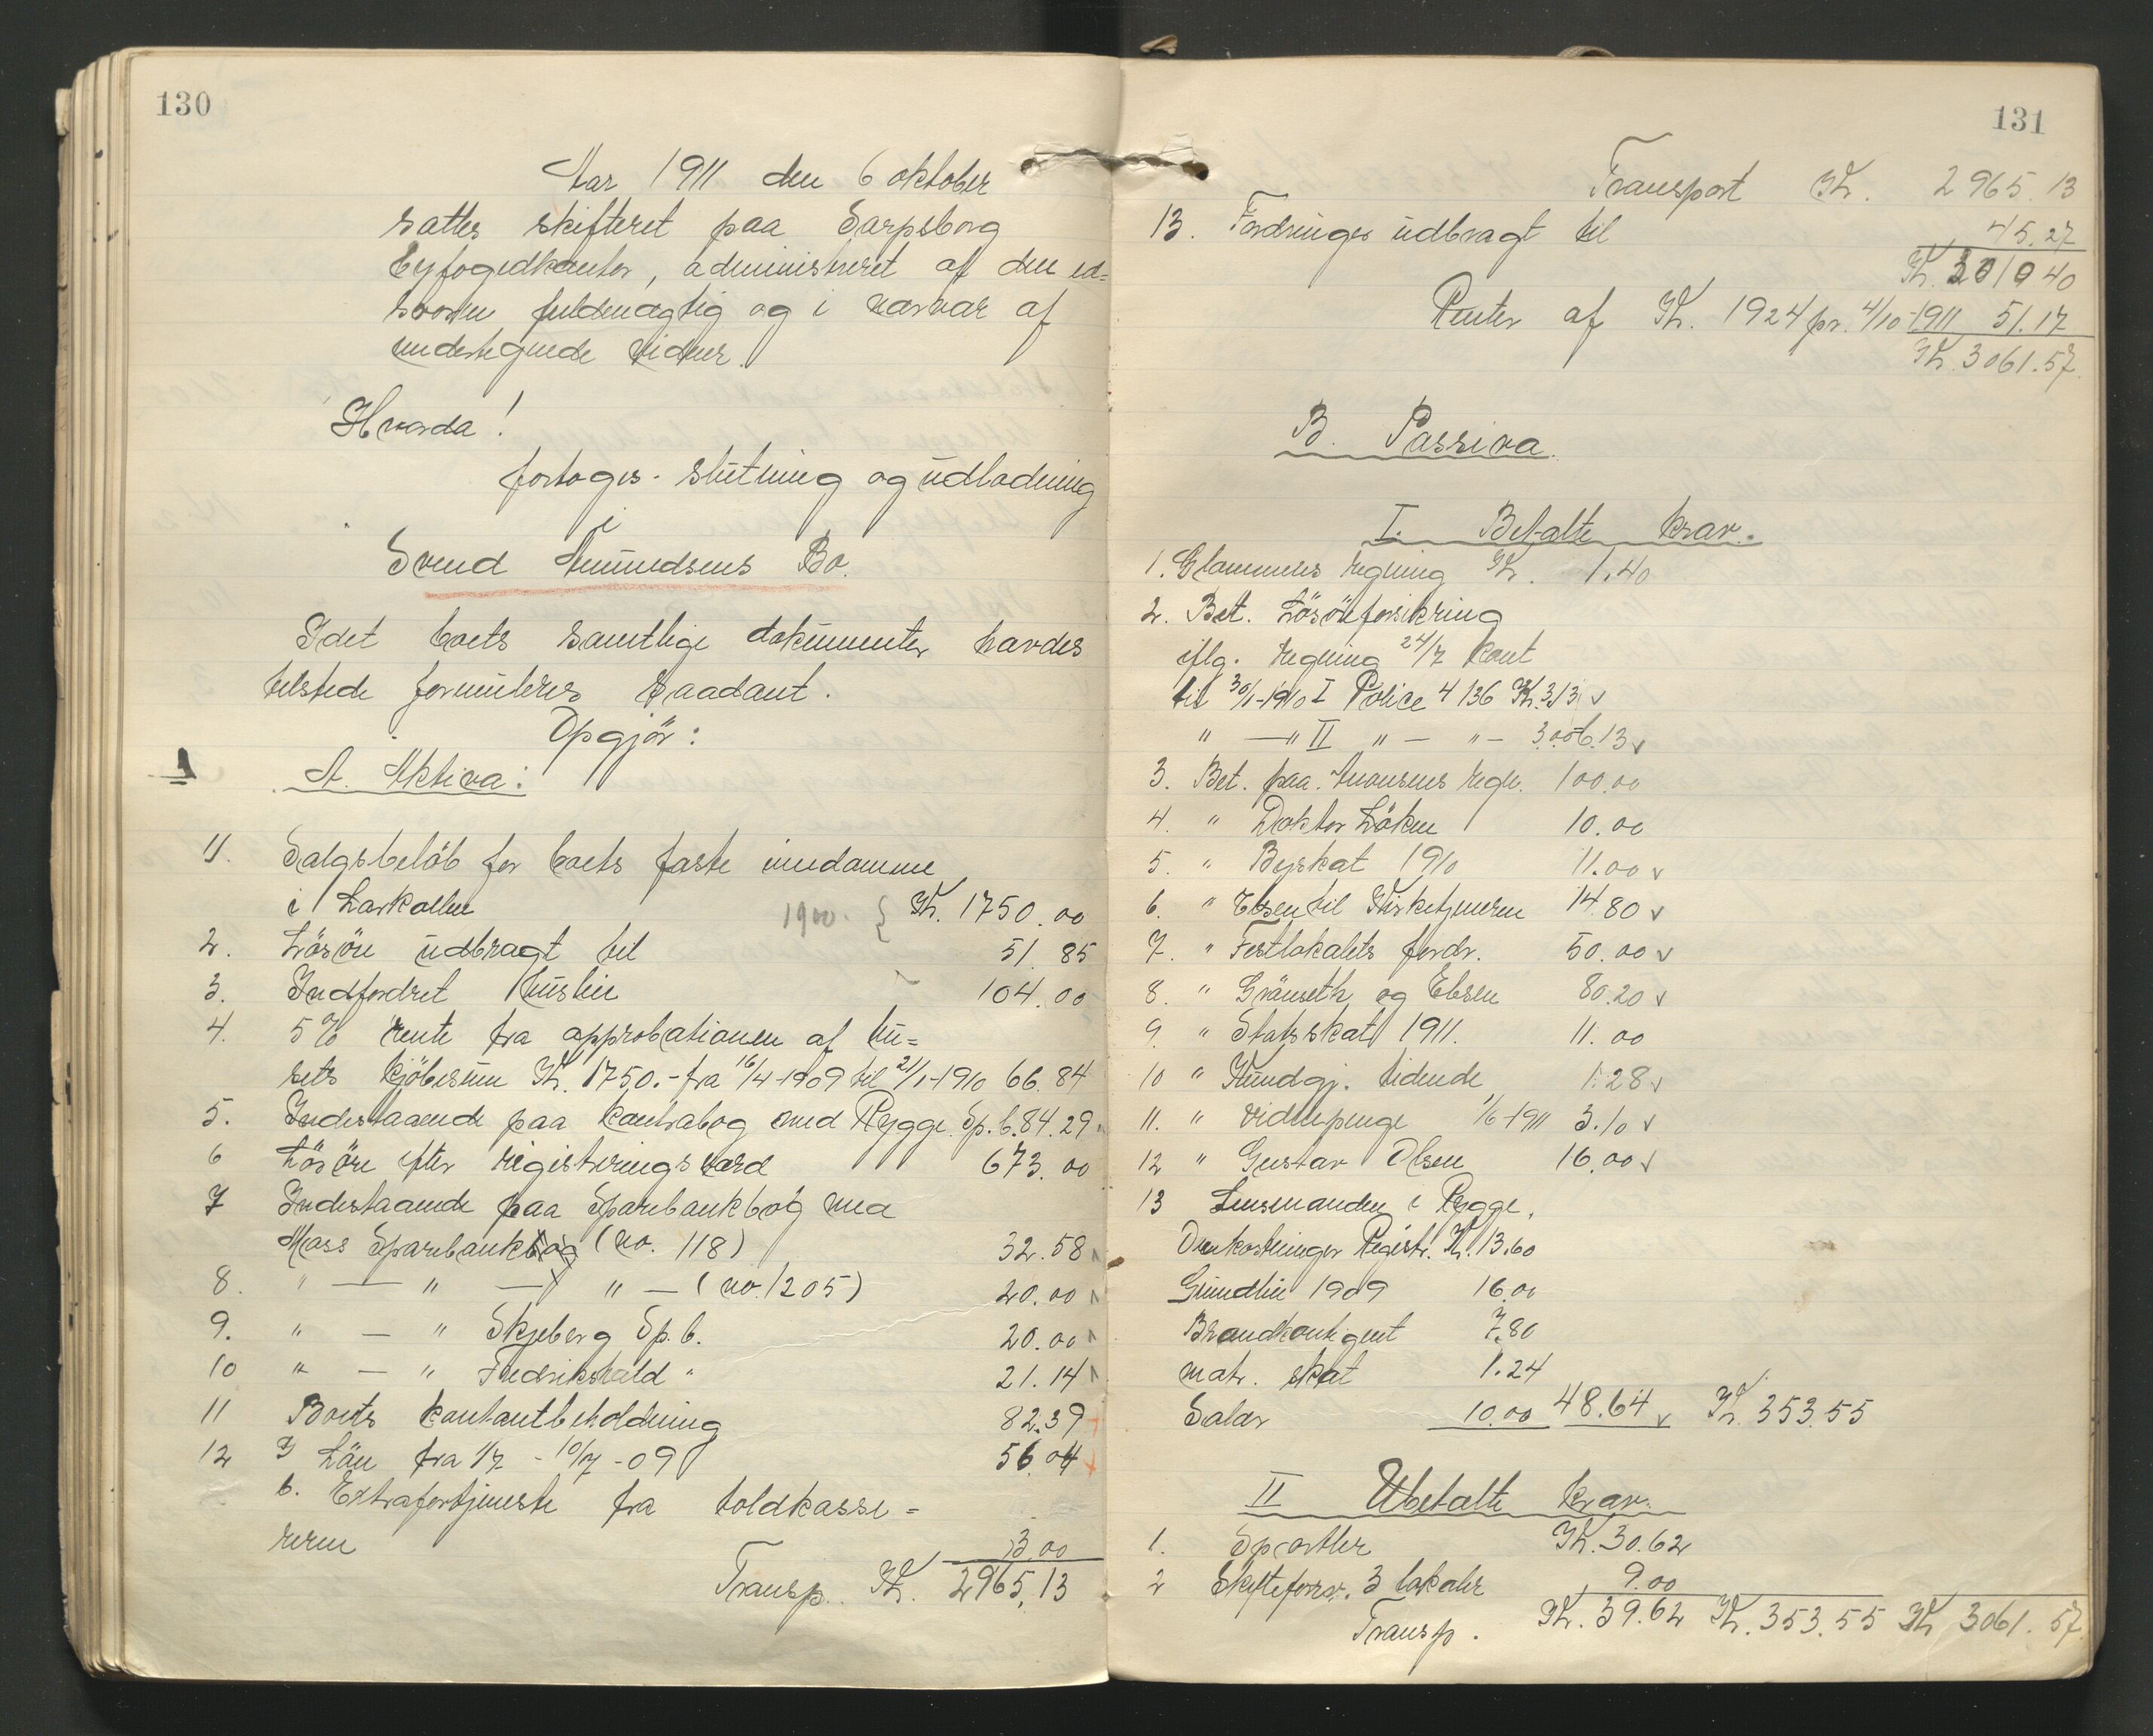 130
Aar 1911 den 6 oktober
sattes skifteret paa Sarpsborg
byfogedkontor, administreret af den ed=
svorne fuldmægtig og i nærvær af
undertegnede vidner.
Hvorda!
foretoges slutning og udlodning
i
Svend Amundsens Bo.
Idet boets samtlige dokumenter havdes
tilstede formuleres saadant.
Opgjör:
1
A. Aktiva:
1). Salgsbelöb for boets faste eiendomme
i Larkollen 1900. { Kr. 1750.00
2. Lösöre udbragt til 51.85
3. Indfordret husleie 104.00
4. 5% rente fra approbationen af hu=
sets kjöbesum Kr. 1750.- fra 16/4-1909 til 21/1-1910 66.84
5. Indestaaende paa kontrabog med Rygge Sp.b. 84.29
6 Lösöre efter registreringsværd 673.00
7 Indestaaende paa Sparebankbog med
Moss Sparebank (no. 118) 32.58
8. " — " — " — (no. 1205) 20.00
9. " — " Skjeberg Sp.b. 20.00
10 " — " Fredrikshald " 21.14
11 Boets kontantbeholdning 82.39
12 Lön fra 1/7 - 10/7 - 09 56.04
b. Extrafortjeneste fra toldkasse=
reren 3.00
Transp. Kr. 2965.13
131
Transport Kr. 2965.13
13. Fordringer udbragt til 45.27
Kr. 3010 40
Renter af Kr. 1924 pr. 4/10-1911 51.17
Kr. 3061.57
B. Passiva.
I. Betalte krav.
1. Glommens regning Kr. 1.40
2. Bet. Lösöreforsikring
iflg. regning 24/7 kont
til 30/1-1910 I Police 4136 Kr. 3.13
" — " II " — " — 3.00 6.13
3. Bet. paa regn. 100.00
4. " Doktor Löken 10.00
5. " Byskat 1910 11.00
6. " Ebsen til Kirketjeneren 14.80
7. " Festlokalets fordr. 50.00
8. " og Ebsen 80.20
9. " Statsskat 1911. 11.00
10 " Kundgj. tidende 1.28
11. " vidnepenge 1/6-1911 3.10
12 " Gustav Olsen 16.00
13 Lensmanden i Rygge,
Omkostninger Registr. Kr. 13.60
Grundleie 1909 16.00
Brandkontigent 7.80
matr. skat 1.24
Salær 10.00 48.64 Kr. 353.55
II Ubetalte krav.
1. Sportler Kr. 30.62
2 Skifteforv. 3 lokaler 9.00
Transp. Kr. 39.62 Kr. 353.55 Kr 3061.57